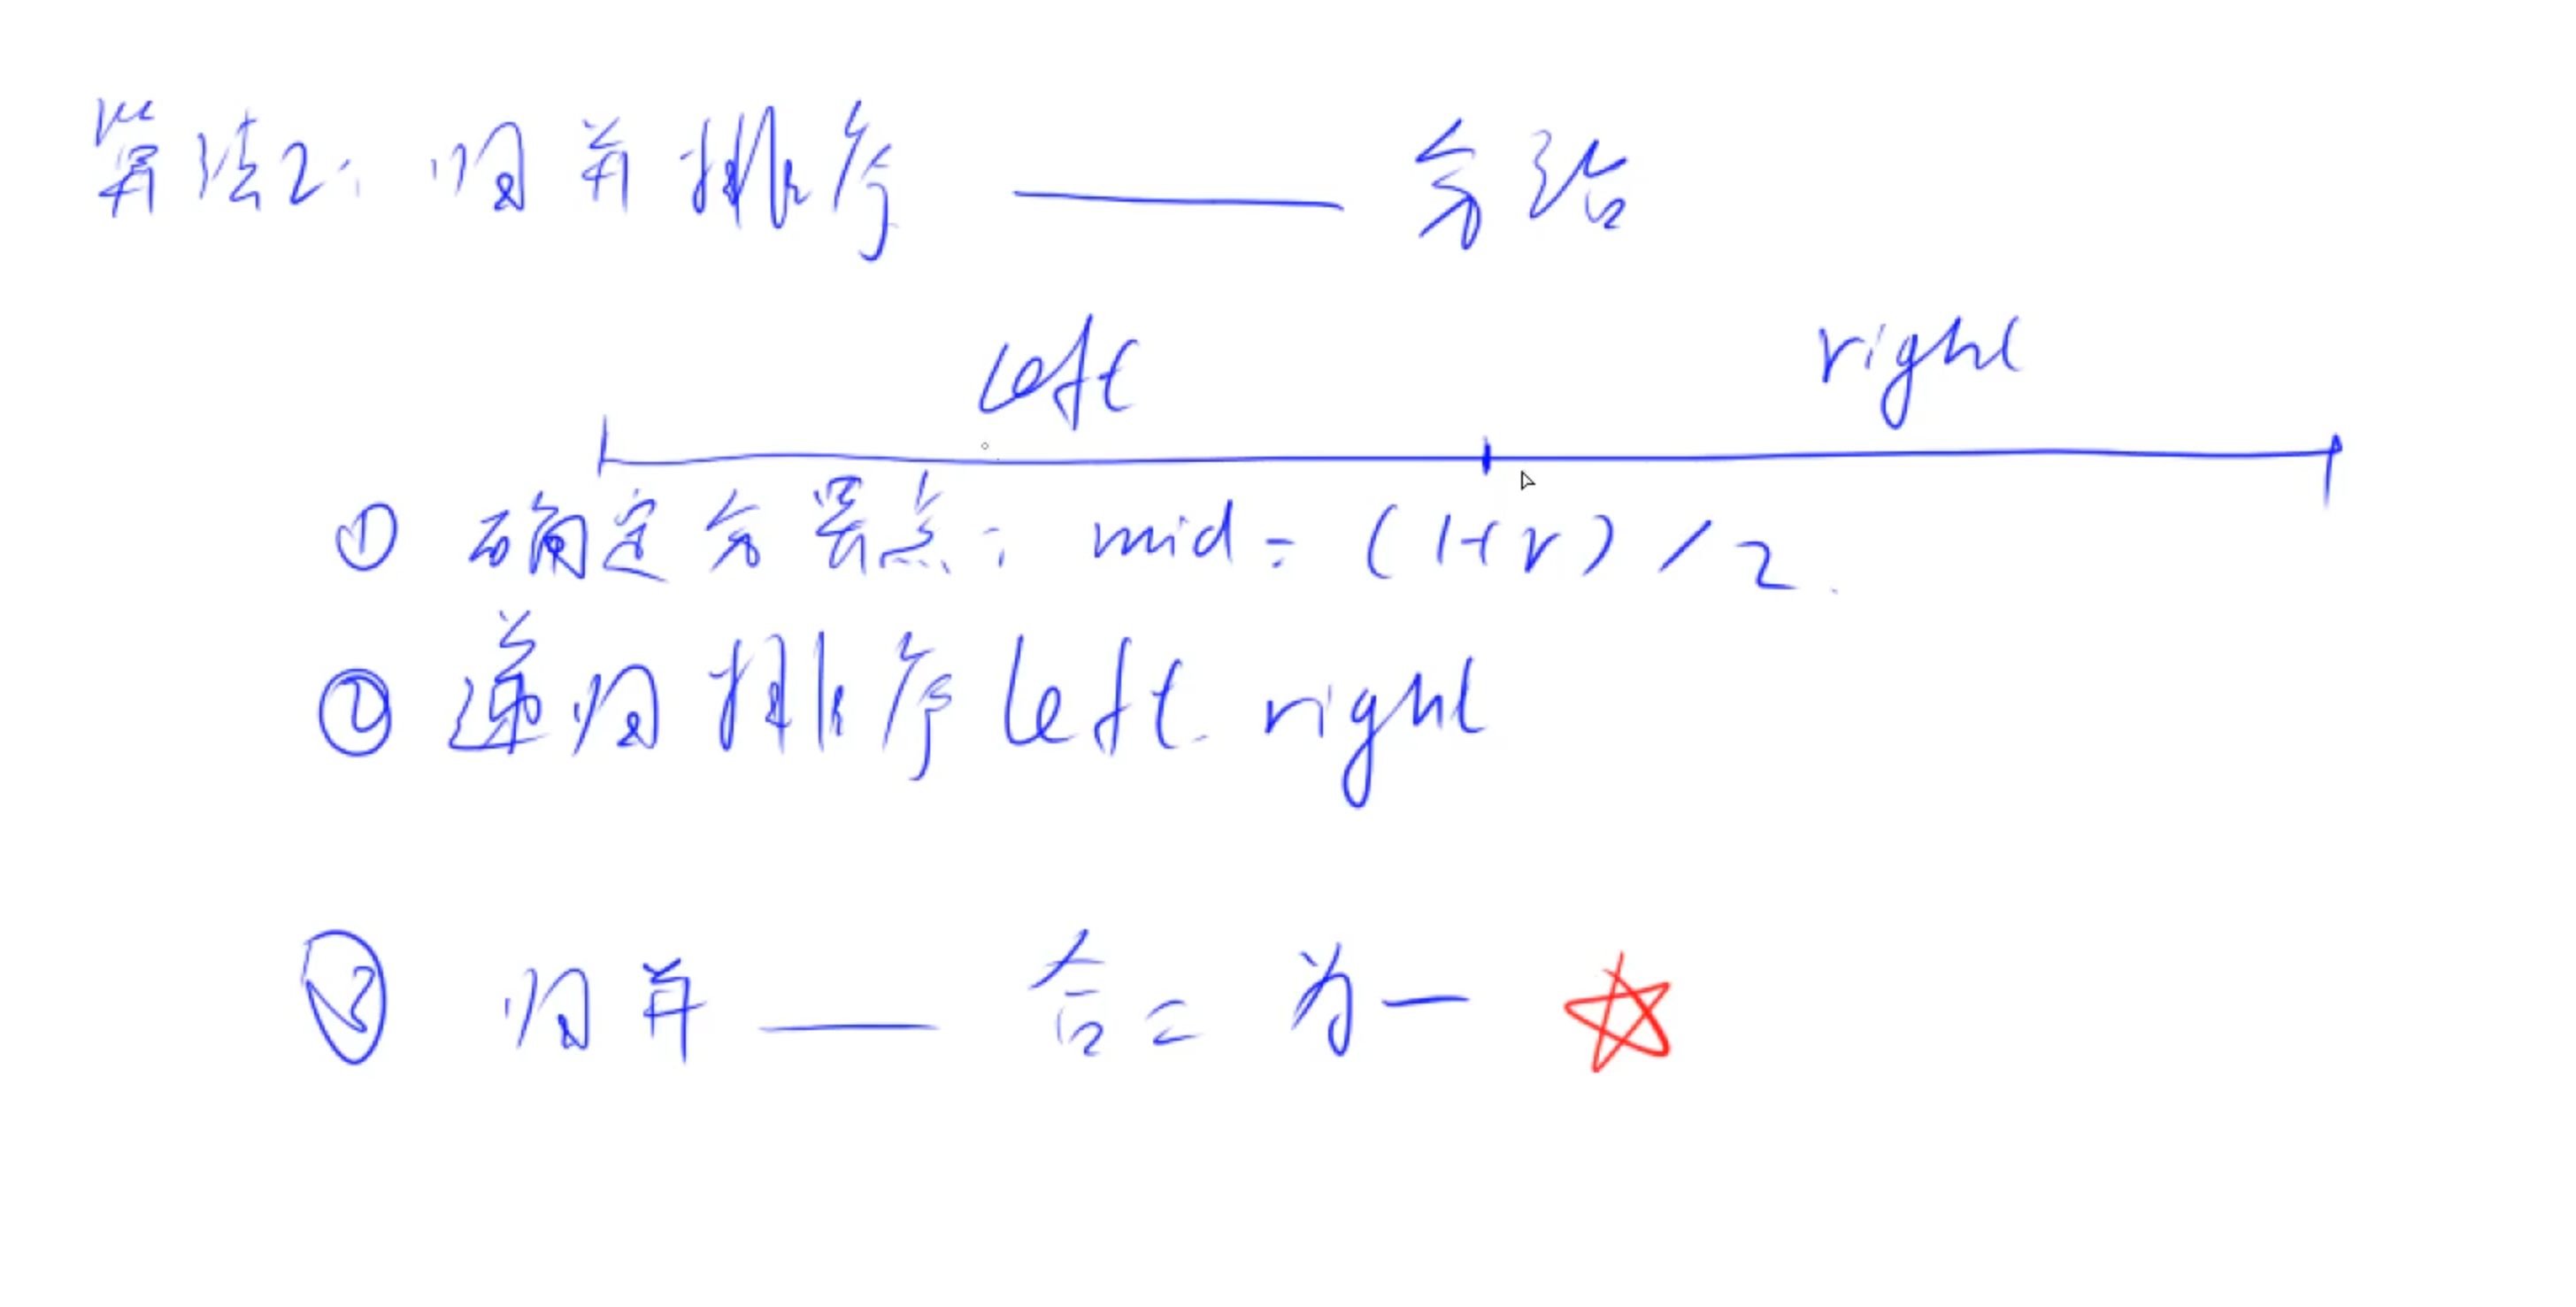 算法2: 归并排序 —— 分治
left right
① 确定分界点: mid = (l+r) / 2.
② 递归排序 left. right
③ 归并 —— 合二为一 ☆